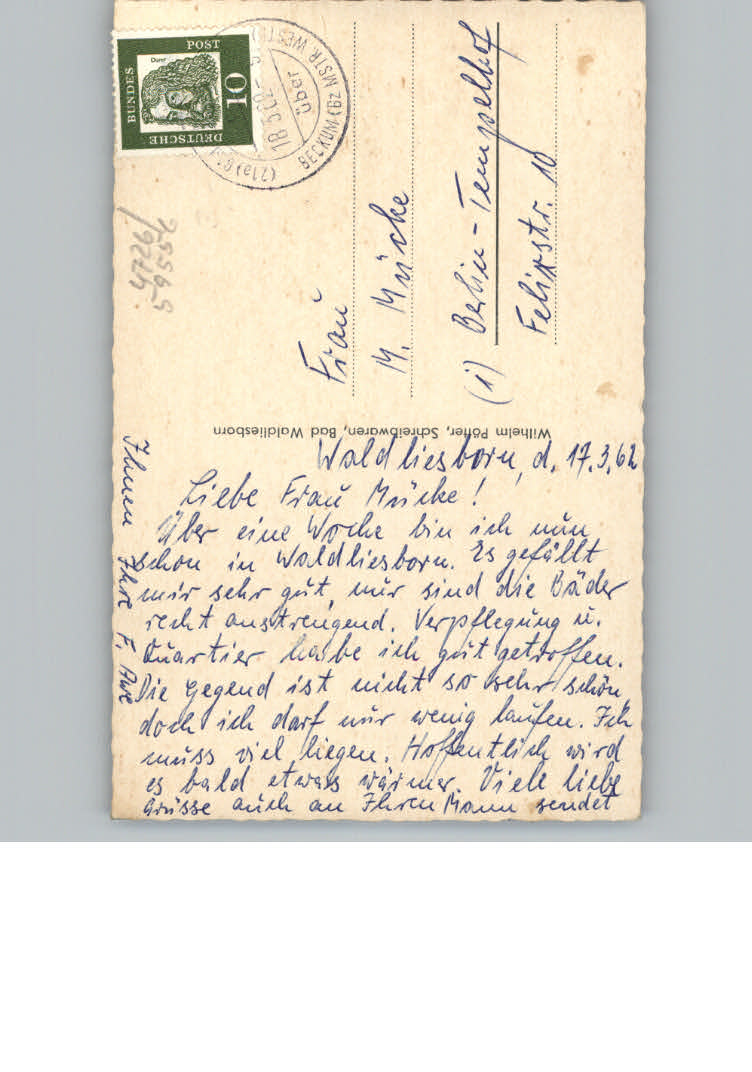 Waldliesborn, d. 17.3.62
Liebe Frau Mücke!
Über eine Woche bin ich nun
schon in Waldliesborn. Es gefällt
mir sehr gut, nur sind die Bäder
recht anstrengend. Verpflegung u.
Quartier habe ich gut getroffen.
Die Gegend ist nicht so sehr schön,
doch ich darf nur wenig laufen. Ich
muss viel liegen. Hoffentlich wird
es bald etwas wärmer. Viele liebe
Grüsse auch an Ihren Mann sendet
Ihnen Ihre F.
Frau
M. Mücke
(1) Berlin-Tempelhof
Felixstr. 10
Wilhelm Pötter, Schreibwaren, Bad Waldliesborn
DEUTSCHE
BUNDES
POST
10
Dürer
18.3.62
über
BECKUM (BZ MSTR. WESTF)
(21a)